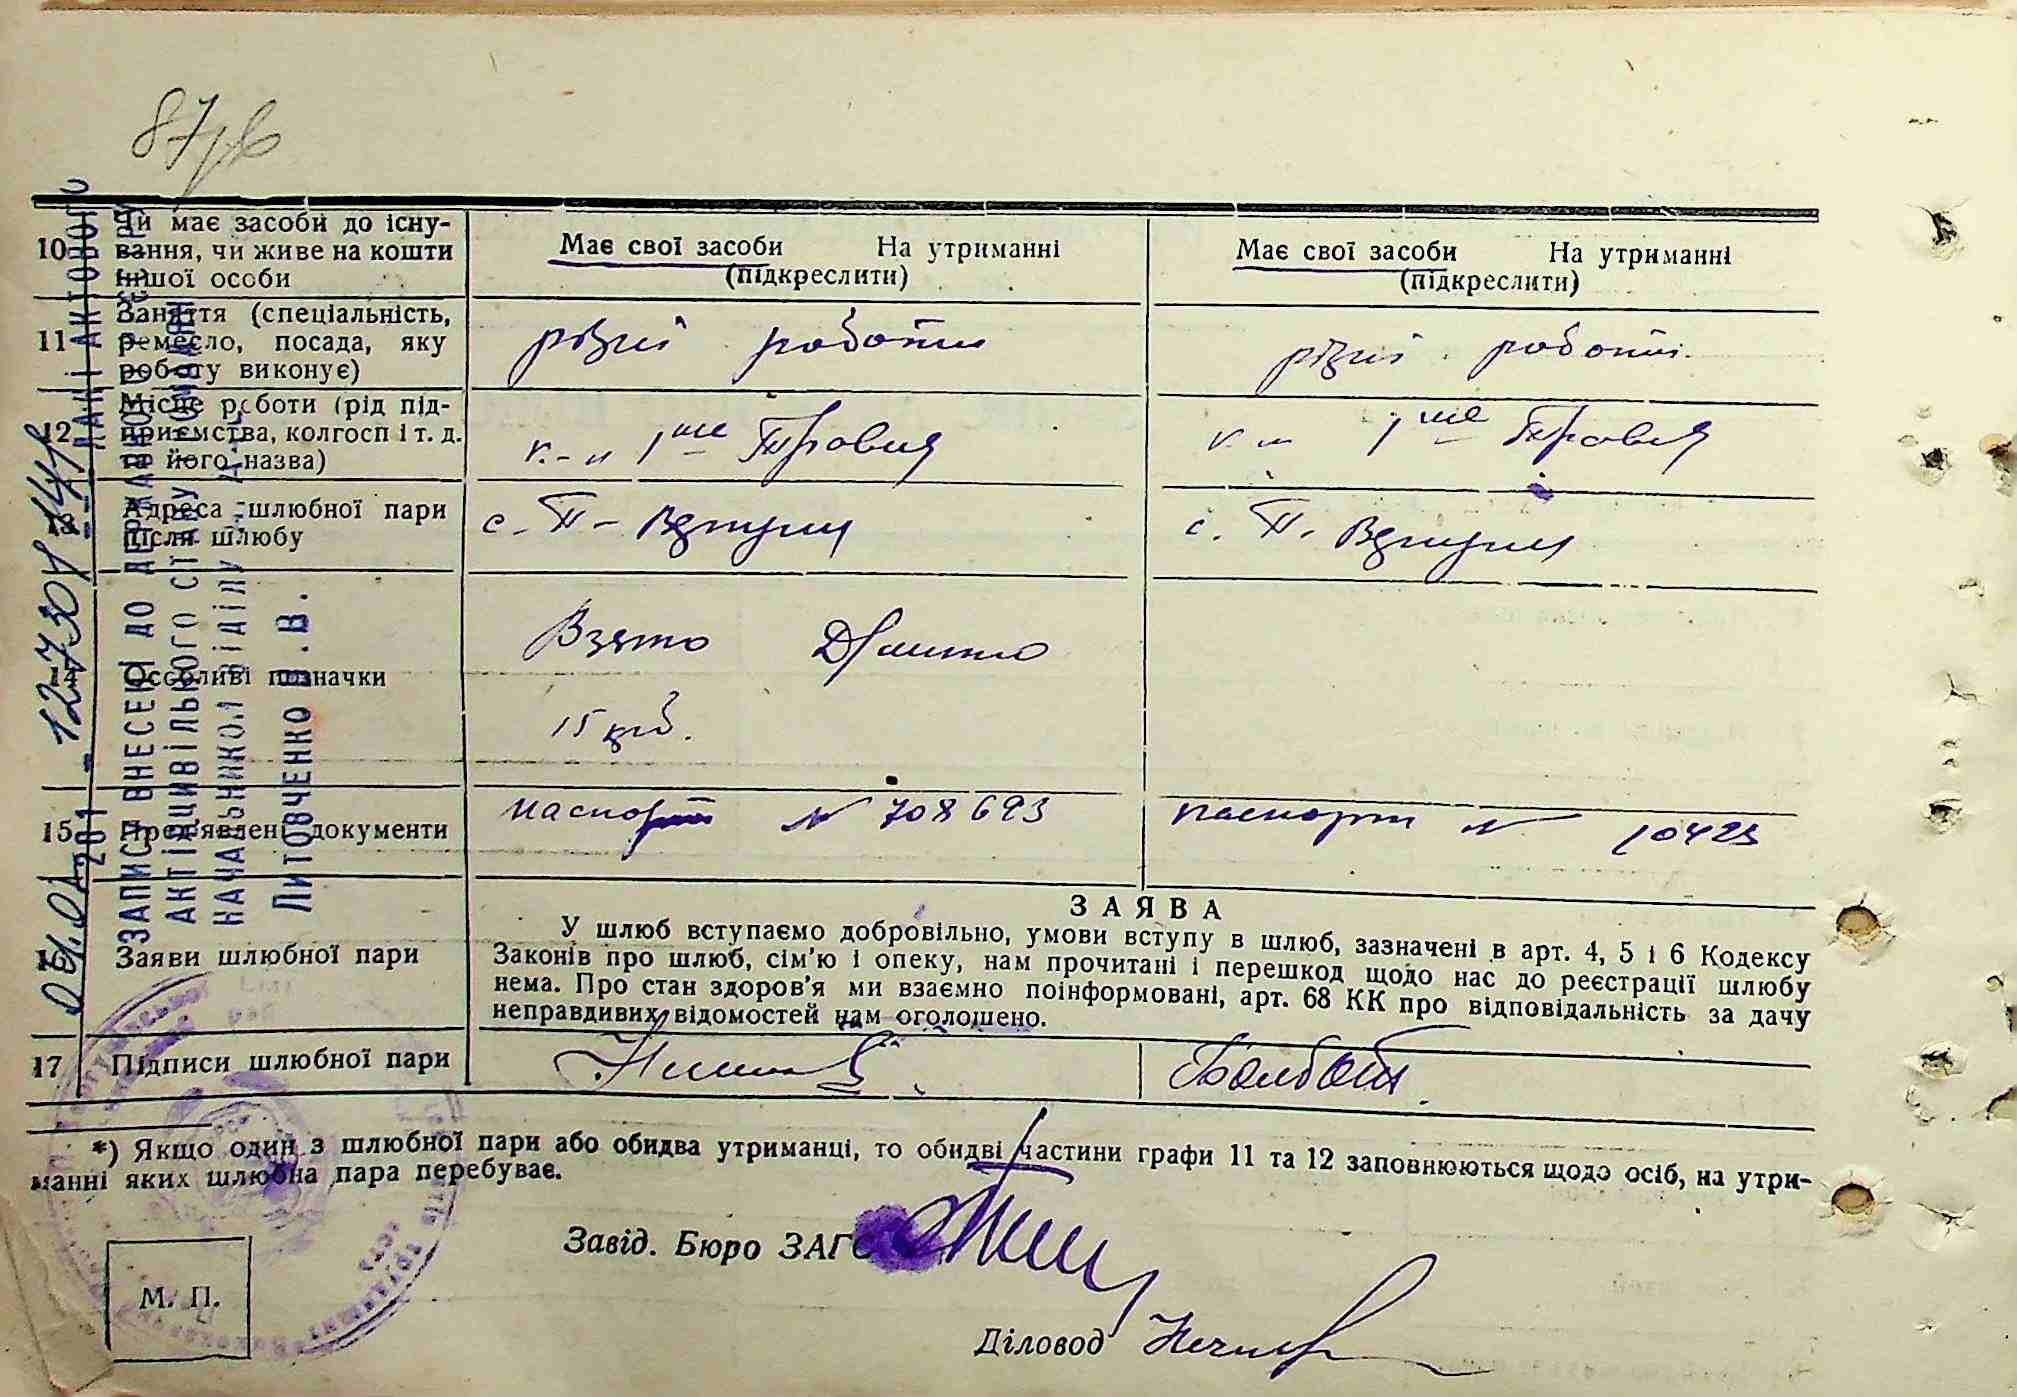 87
10 Чи має засоби до існування, чи живе на кошти іншої особи
Має свої засоби На утриманні (підкреслити)
Має свої засоби На утриманні (підкреслити)
11 Заняття (спеціальність, ремесло, посада, яку роботу виконує)
різні роботи
різні роботи
12 Місце роботи (рід підприємства, колгосп і т. д. та його назва)
к-п 1ше Травня
к-п 1ше Травня
13 Адреса шлюбної пари після шлюбу
с. П-
с. П.
14 Особливі позначки
Взято
15 крб.
15 Пред'явлені документи
паспорт № 708693
паспорт № 10423
Заяви шлюбної пари
ЗАЯВА
У шлюб вступаємо добровільно, умови вступу в шлюб, зазначені в арт. 4, 5 і 6 Кодексу
Законів про шлюб, сім'ю і опеку, нам прочитані і перешкод щодо нас до реєстрації шлюбу
нема. Про стан здоров'я ми взаємно поінформовані, арт. 68 КК про відповідальність за дачу
неправдивих відомостей нам оголошено.
17 Підписи шлюбної пари
*) Якщо один з шлюбної пари або обидва утриманці, то обидві частини графи 11 та 12 заповнюються щодо осіб, на утри-
манні яких шлюбна пара перебуває.
Завід. Бюро ЗАГС
М. П.
Діловод
ЗАПИСИ ВНЕСЕНІ ДО ДЕРЖАНОГО РЕЄСТРУ
АКТІВ ЦИВІЛЬНОГО СТАНУ ГРОМАДЯН
НАЧАЛЬНИКОМ ВІДІЛУ
Литовченко
201